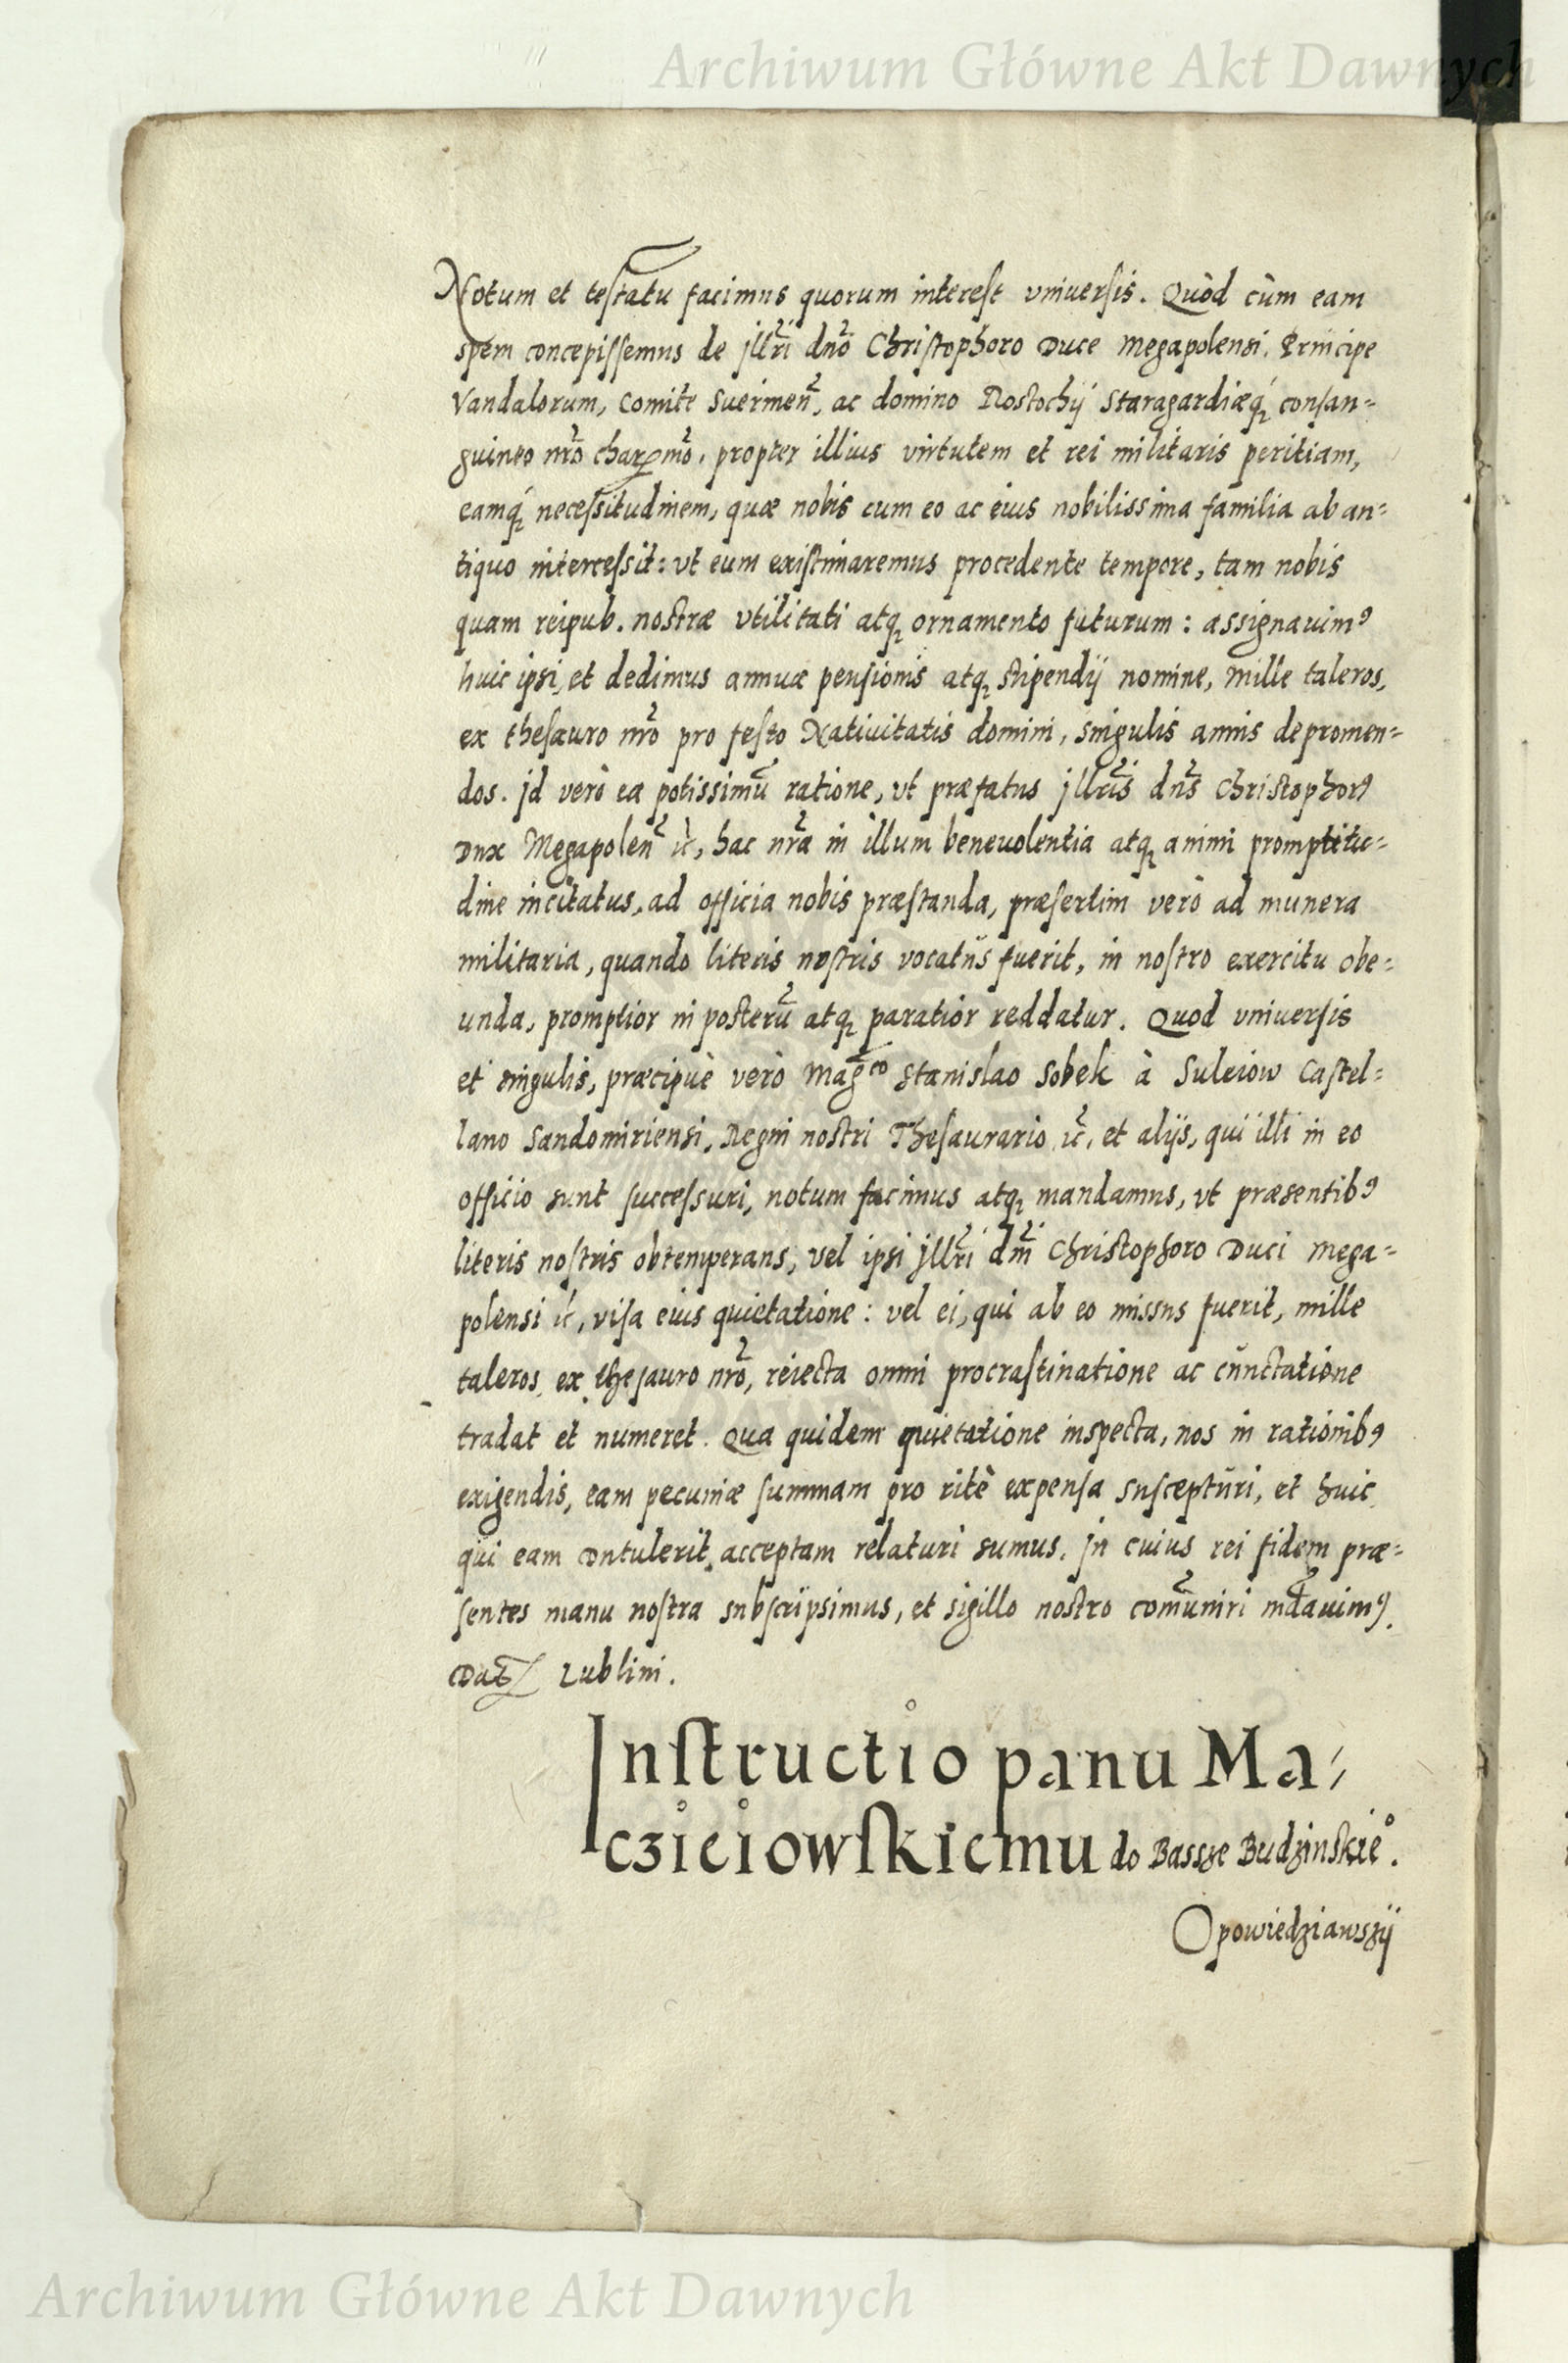 Archiwum Główne Akt Dawnych
Notum et testatū facimus quorum interest vniuersis. Quòd cùm eam
spem concepissemus de jllr̃i dño Christophoro Duce Megapolensi, Principe
Vandalorum, Comite Suerinen̄, ac domino Rostochij Staragardiæq́ꝫ consan=
guineo nr̃o charmõ, propter illius virtutem et rei militaris peritiam,
eamq́ꝫ necessitudinem, quæ nobis cum eo ac eius nobilissima familia ab an=
tiquo intercessit: vt eum existimaremus procedente tempore, tam nobis
quam reipub. nostræ vtilitati atqꝫ ornamento futurum: assignauimꝰ
huic ipsi, et dedimus annuæ pensionis atqꝫ stipendij nomine, mille taleros,
ex thesauro nr̃o pro festo Natiuitatis domini, singulis annis depromen=
dos. Jd verò ea potissimū ratione, vt præfatus jllr̃is dñs Christophorꝰ
Dux Megapolen̄ ꝛc̃, hac nr̃a in illum beneuolentia atqꝫ animi promptitu=
dine incitatus, ad officia nobis præstanda, præsertim verò ad munera
militaria, quando literis nostris vocatus fuerit, in nostro exercitu obe=
unda, promptior in posterū atqꝫ paratior reddatur. Quod vniuersis
et singulis, præcipuè verò Mag̃co Stanislao Sobek à Suleiow Castel=
lano Sandomiriensi, Regni nostri Thesaurario ꝛc̃, et alijs, qui illi in eo
officio sunt successuri, notum facimus atqꝫ mandamus, vt præsentibꝰ
literis nostris obtemperans, vel ipsi jllr̃i dñi Christophoro Duci Mega=
polensi ꝛc̃, visa eius quietatione: vel ei, qui ab eo missus fuerit, mille
taleros, ex thesauro nr̃o, reiecta omni procrastinatione ac cunctatione
tradat et numeret. Qua quidem quietatione inspecta, nos in rationibꝰ
exigendis, eam pecuniæ summam pro ritè expensa suscepturi, et huic
qui eam contulerit acceptam relaturi sumus. Jn cuius rei fidem præ=
sentes manu nostra subscripsimus, et sigillo nostro com̄uniri mādauimꝰ.
Dat̃ Lublini.
Instructio panu Ma/
cziciowskiemu do Bassze Budzinskie°.
Opowiedziawszÿ
Archiwum Główne Akt Dawnych